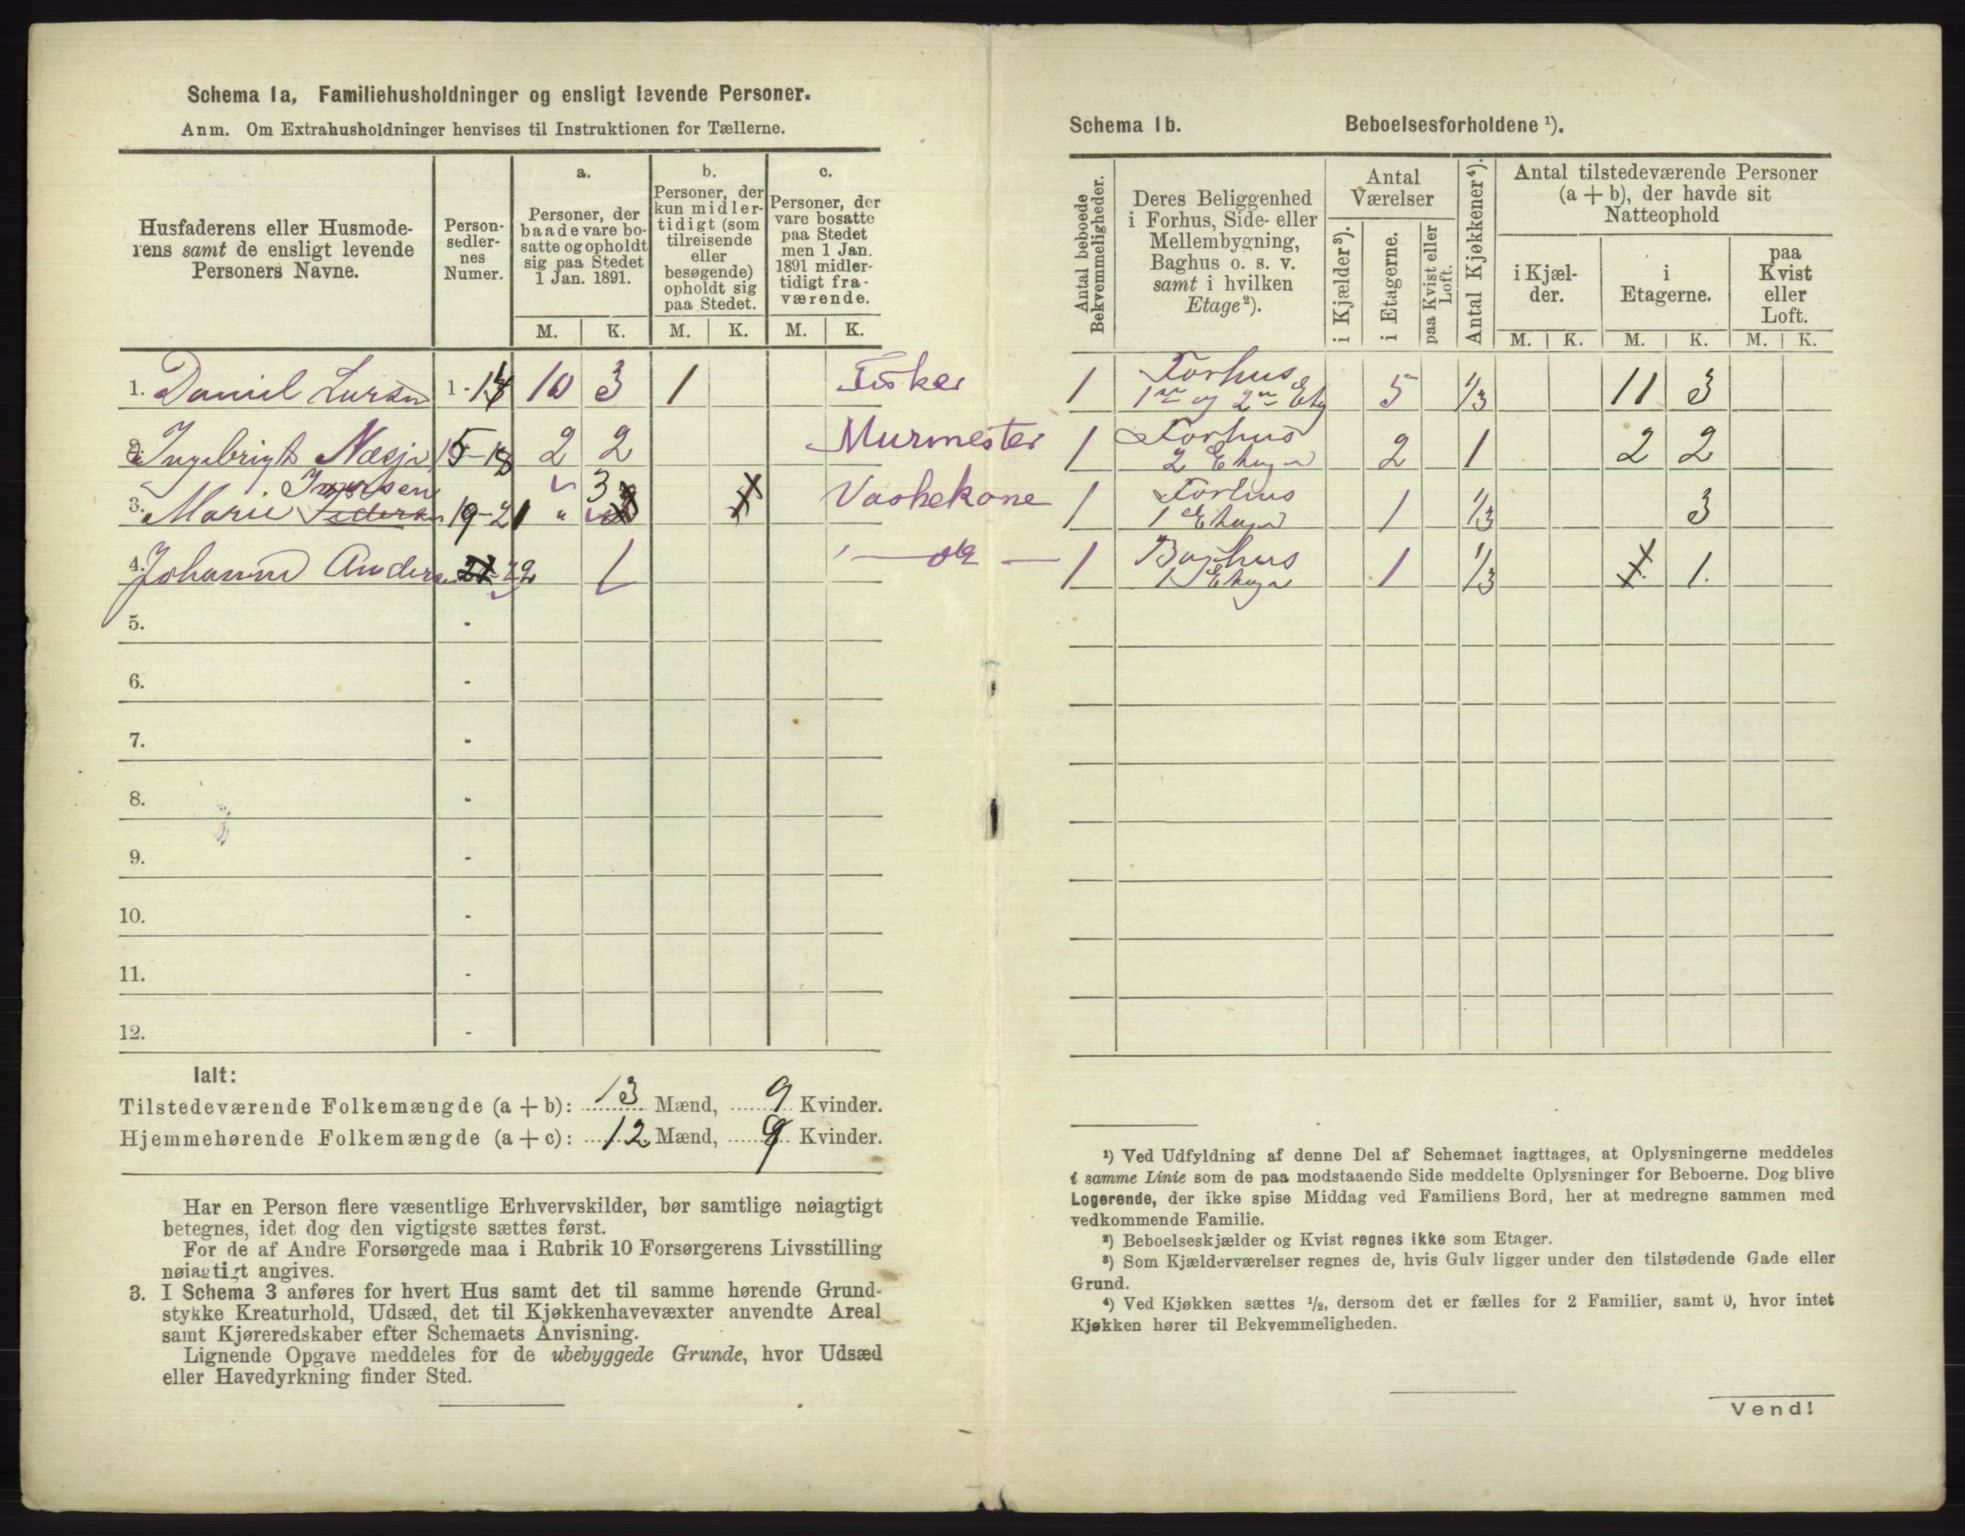 Schema 1a, Familiehusholdninger og ensligt levende Personer.
Anm. Om Extrahusholdninger henvises til Instruktionen for Tællerne.
Husfaderens eller Husmode-
rens samt de ensligt levende
Personers Navne.
Person-
sedler-
nes
Numer.
a.
Personer, der
baade vare bo-
satte og opholdt
sig paa Stedet
1 Jan. 1891.
b.
Personer, der
kun midler-
tidigt (som
tilreisende
eller
besøgende)
opholdt sig
paa Stedet.
c.
Personer, der
vare bosatte
paa Stedet
men 1 Jan.
1891 midler-
tidigt fra-
værende.
M. K. M. K. M. K.
1. Daniel Larsen 1-14 10 3 1 Fisker
2. Ingebrigt Næsje 15-18 2 2 Murmester
3. Marie Iversen 19-21 " 3 Vaskekone
4. Johanne Anders 22 1 — do —
5. -
6. -
7. -
8. -
9. -
10. -
11. -
12. -
Ialt:
Tilstedeværende Folkemængde (a + b): 13 Mænd, 9 Kvinder.
Hjemmehørende Folkemængde (a + c): 12 Mænd, 9 Kvinder.
Har en Person flere væsentlige Erhvervskilder, bør samtlige nøiagtigt
betegnes, idet dog den vigtigste sættes først.
For de af Andre Forsørgede maa i Rubrik 10 Forsørgerens Livsstilling
nøiagtigt angives.
3. I Schema 3 anføres for hvert Hus samt det til samme hørende Grund-
stykke Kreaturhold, Udsæd, det til Kjøkkenhavevæxter anvendte Areal
samt Kjøreredskaber efter Schemaets Anvisning.
Lignende Opgave meddeles for de ubebyggede Grunde, hvor Udsæd
eller Havedyrkning finder Sted.
Schema 1b. Beboelsesforholdene ¹).
Antal beboede
Bekvemmeligheder.
Deres Beliggenhed
i Forhus, Side- eller
Mellembygning,
Baghus o. s. v.
samt i hvilken
Etage²).
Antal
Værelser
i Kjælder³).
i Etagerne.
paa Kvist eller
Loft.
Antal Kjøkkener⁴).
Antal tilstedeværende Personer
(a + b), der havde sit
Natteophold
i Kjæl-
der.
i
Etagerne.
paa
Kvist
eller
Loft.
M. K. M. K. M. K.
1 Forhus
1ste og 2den Etg 5 1/3 11 3
1 Forhus
2 Etage 2 1 2 2
1 Forhus
1 Etage 1 1/3 3
1 Baghus
1 Etage 1 1/3 1.
¹) Ved Udfyldning af denne Del af Schemaet iagttages, at Oplysningerne meddeles
i samme Linie som de paa modstaaende Side meddelte Oplysninger for Beboerne. Dog blive
Logerende, der ikke spise Middag ved Familiens Bord, her at medregne sammen med
vedkommende Familie.
²) Beboelseskjælder og Kvist regnes ikke som Etager.
³) Som Kjælderværelser regnes de, hvis Gulv ligger under den tilstødende Gade eller
Grund.
⁴) Ved Kjøkken sættes ½, dersom det er fælles for 2 Familier, samt 0, hvor intet
Kjøkken hører til Bekvemmeligheden.
Vend!